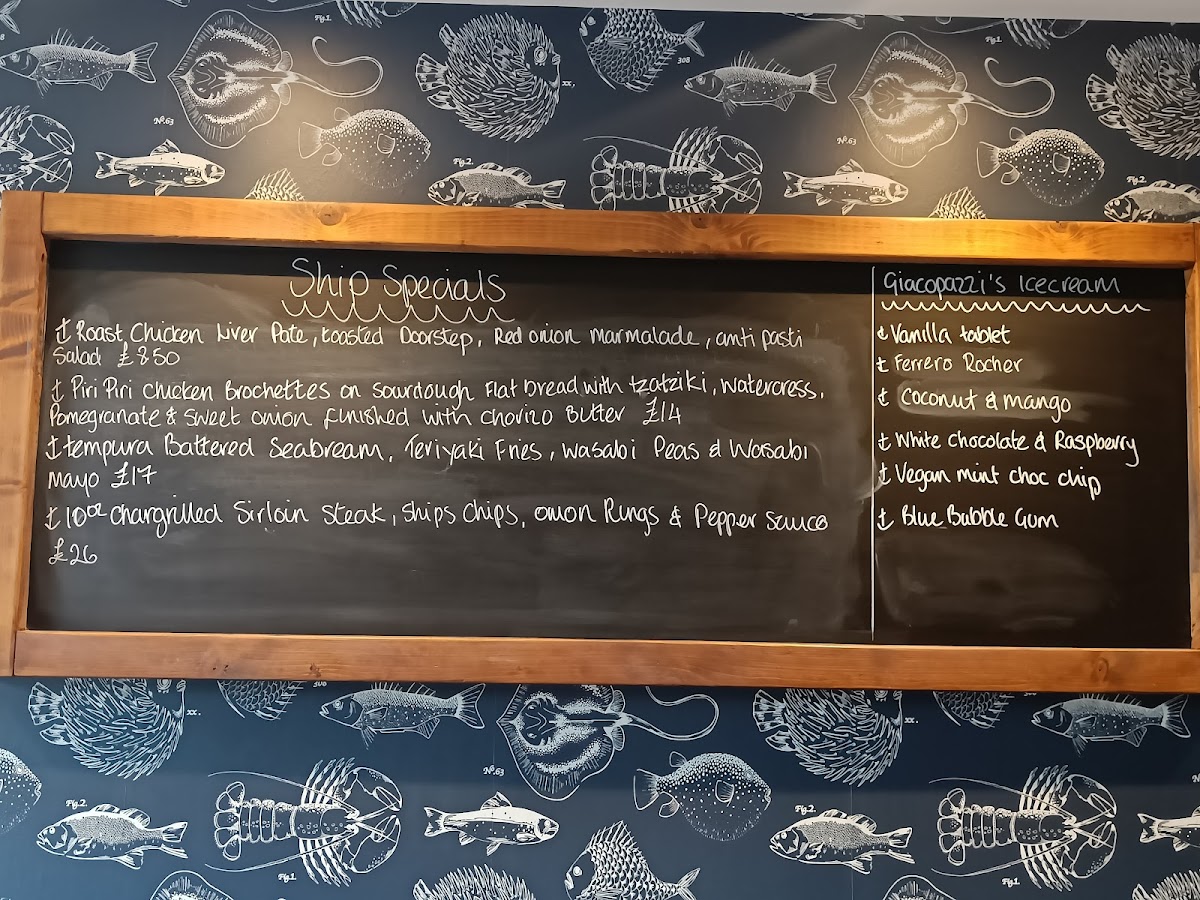 Ship Specials
Roast Chicken Liver Pate, toasted Doorstep, Red onion marmalade, anti pasti
Salad £8.50
Piri Piri Chicken Brochettes on sourdough Flat bread with tzatziki, watercress,
Pomegranate & sweet onion finished with chorizo Butter £14
tempura Battered Seabream, Teriyaki Fries, wasabi Peas & Wasabi
mayo £17
10oz chargrilled Sirloin steak, ships chips, onion Rings & Pepper sauce
£26
Giacopazzi's Icecream
Vanilla tablet
Ferrero Rocher
Coconut & mango
White chocolate & Raspberry
Vegan mint choc chip
Blue Bubble Gum
Fig.1.
308
Fig.1.
xx.
308
Nº.63
Nº.63
Fig.2.
Fig.2.
308
xx.
xx.
Nº.63
Fig.2.
Fig.2.
Fig.1.
Fig.1.